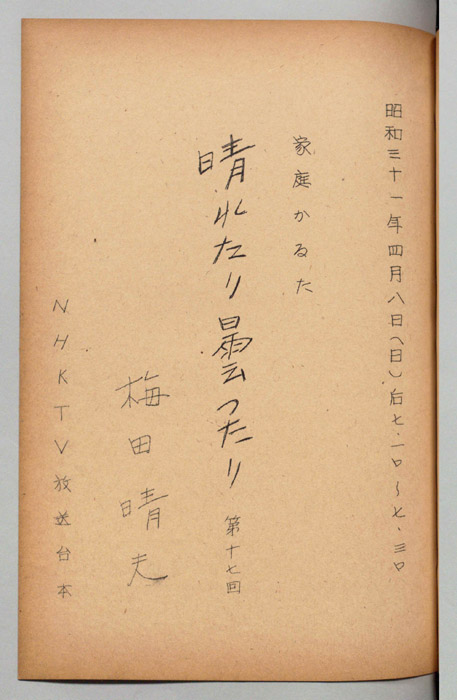 昭和三十一年四月八日(日)后七.一〇～七.三〇
家庭かるた
晴れたり曇ったり 第十七回
梅田晴夫
NHKTV放送台本